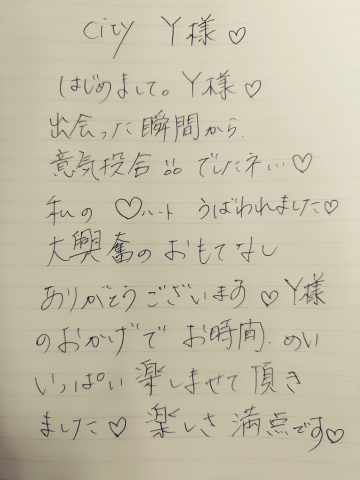 city Y様♡
はじめまして。Y様♡
出会った瞬間から
意気投合 でしたネ…♡
私の ♡ハート うばわれました♡
大興奮の おもてなし
ありがとうございます♡Y様
のおかげで お時間、めい
いっぱい 楽しませて頂き
ました♡ 楽しさ 満点です♡